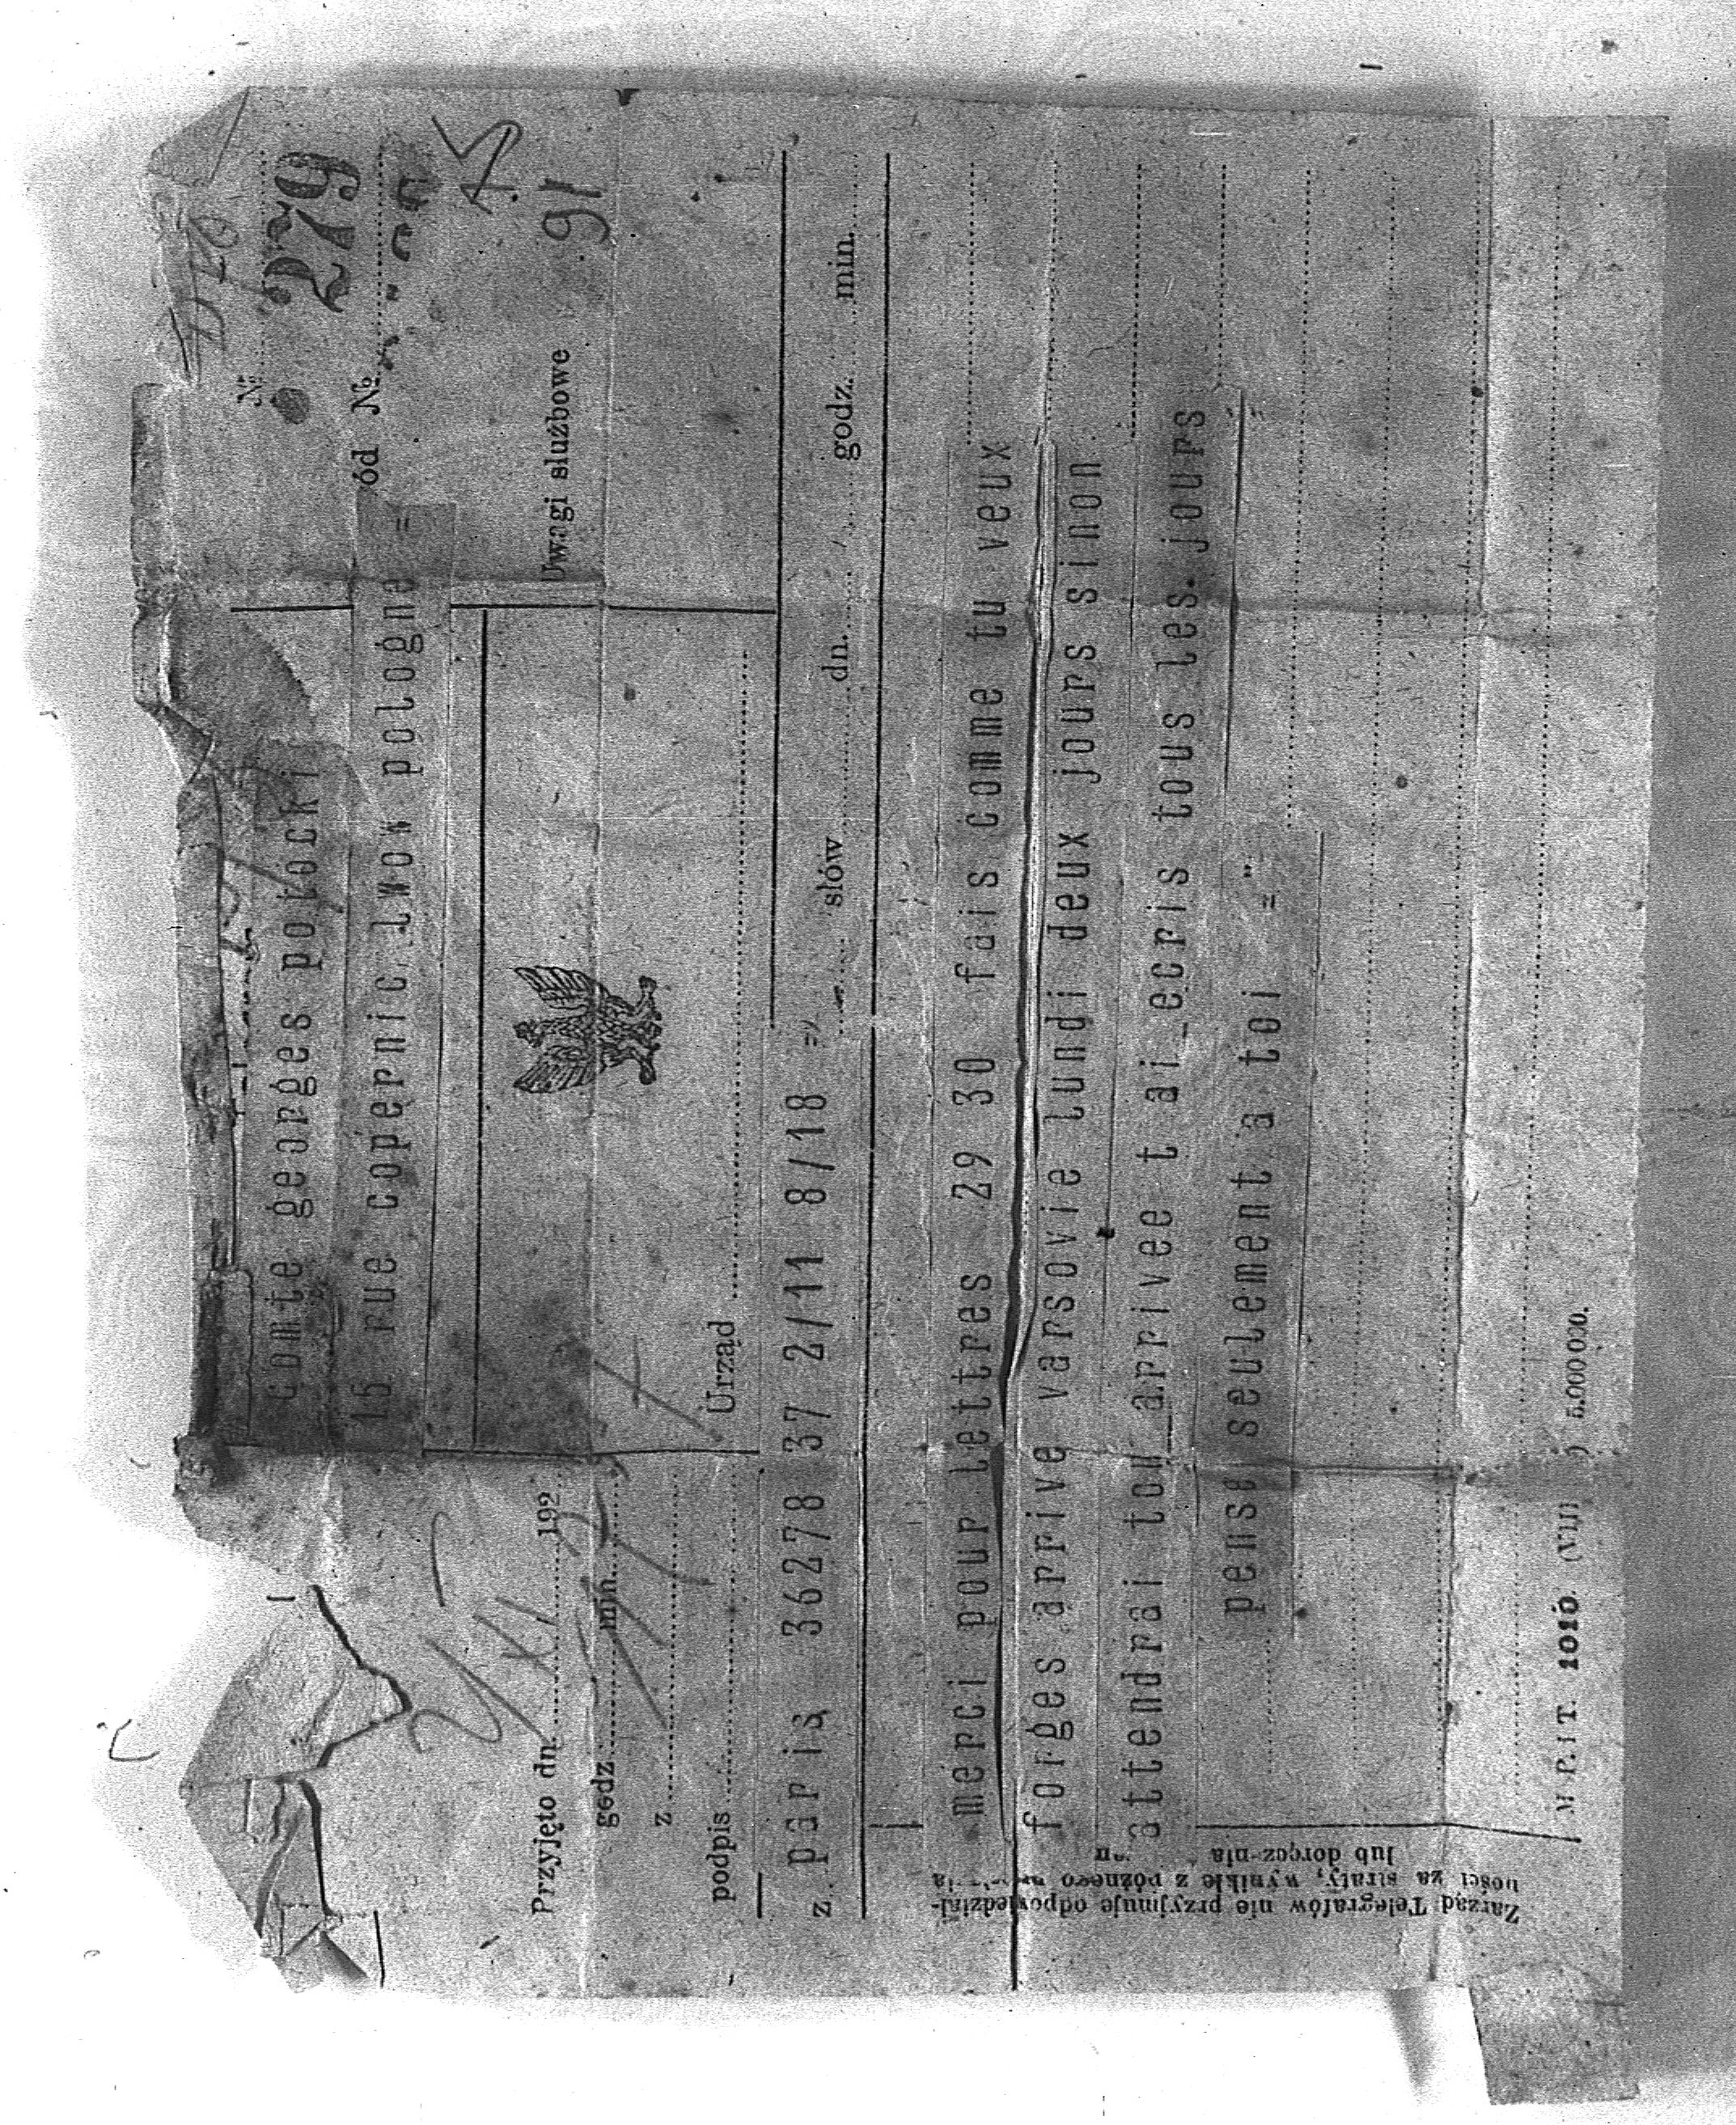 №
279
comte georges potocki
15 rue copernic lwow pologne =
ód №
Przyjęto dn. 192
godz. min.
z
podpis
Urząd
Uwagi służbowe
16
z paris 36278 37 2/11 8/18 =
słów dn. godz. min.
merci pour lettres 29 30 fais comme tu veux
forges arrive varsovie lundi deux jours sinon
attendrai ton arrivee t ai ecris tous les jours
pense seulement a toi ="
Zarząd Telegrafów nie przyjmuje odpowiedzial-
ności za straty, wynikłe z późnego
lub doręczenia
M. P. i T. 1010. (VIII) 5.000 000.